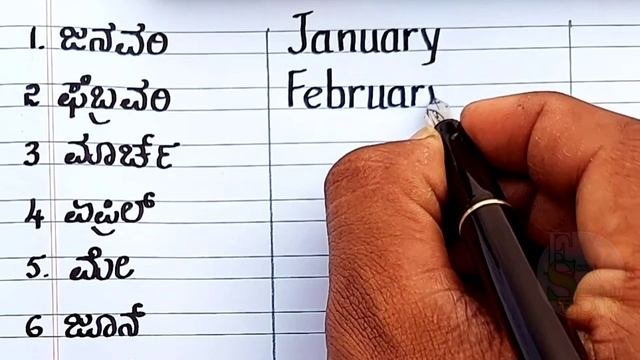 1. ಜನವರಿ January
2 ಫೆಬ್ರವರಿ Februar
3 ಮಾರ್ಚ್
4 ಏಪ್ರಿಲ್
5. ಮೇ
6 ಜೂನ್